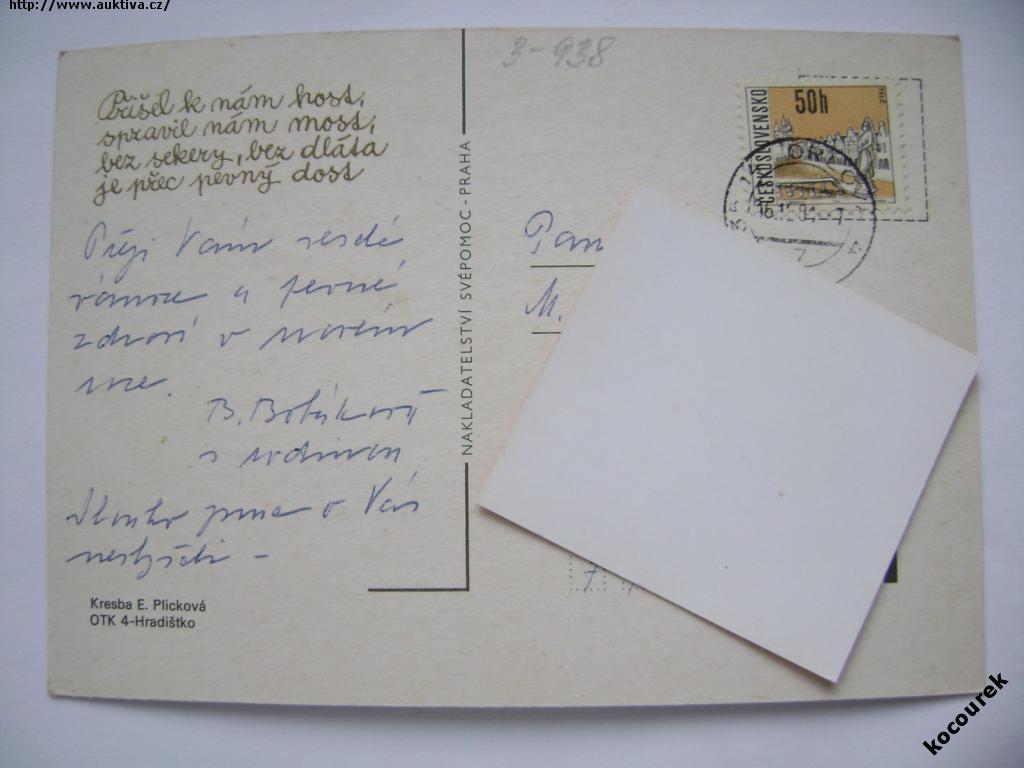 http://www.auktiva.cz/
3-938
Přišel k nám host,
spravil nám most,
bez sekery, bez dláta
je přec pevný dost
Přeji Vám veselé
vánoce a pevné
zdraví v novém
roce.
B. Bobáková
s rodinou
Dlouho jsme o Vás
neslyšeli -
Kresba E. Plicková
OTK 4-Hradištko
NAKLADATELSTVÍ SVÉPOMOC - PRAHA
50h
ČESKOSLOVENSKO
Pan
M.
7
kocourek